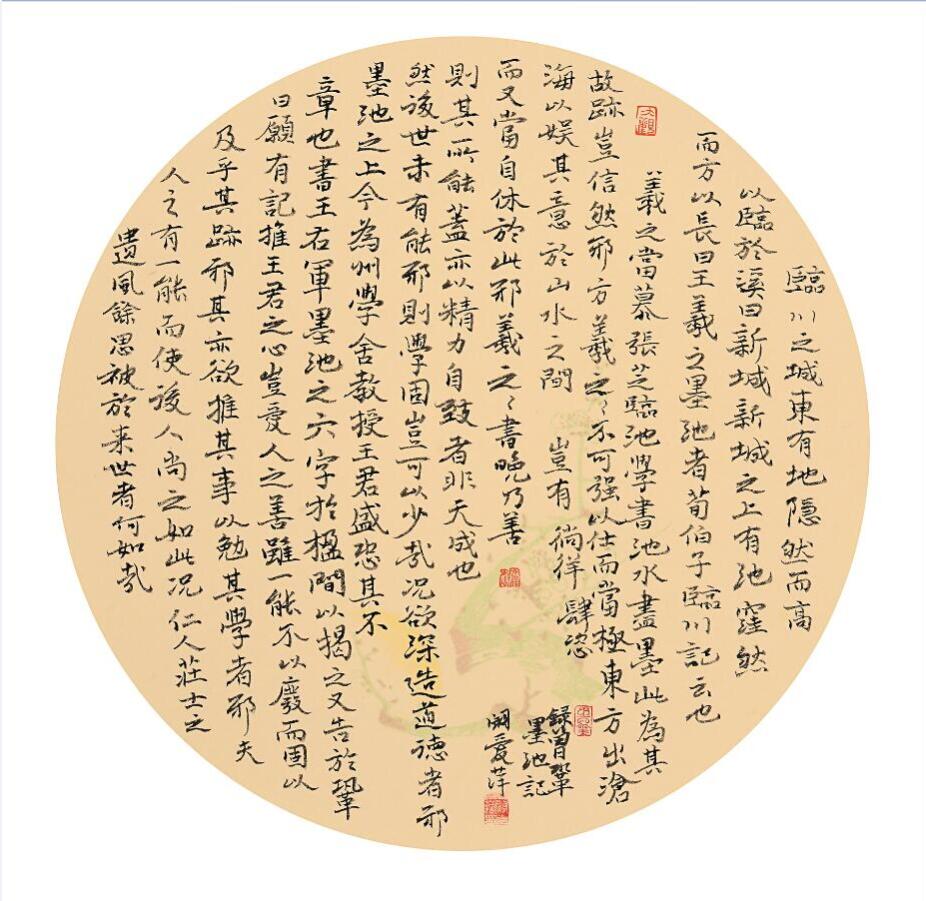 臨川之城東有地隱然而高
以臨於溪曰新城新城之上有池窪然
而方以長曰王羲之墨池者荀伯子臨川記云也
羲之嘗慕張芝臨池學書池水盡墨此為其
故跡豈信然邪方羲之々不可强以仕而嘗極東方出滄
海以娱其意於山水之間 豈有徜徉肆恣
而又嘗自休於此邪羲之々書晚乃善
則其所能蓋亦以精力自致者非天成也
然後世未有能邪則學固豈可以少哉况欲深造道德者邪
墨池之上今為州學舍教授王君盛恐其不
章也書王右軍墨池之六字於楹間以揭之又告於鞏
曰願有記推王君之心豈愛人之善雖一能不以廢而因以
及乎其跡邪其亦欲推其事以勉其學者邪夫
人之有一能而使後人尚之如此况仁人莊士之
遺風餘思被於来世者何如哉
録曾鞏
墨池記
愛萍